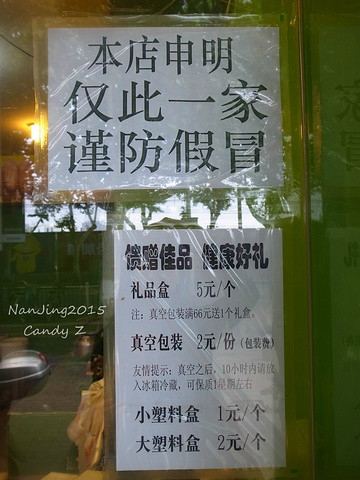 本店申明
仅此一家
谨防假冒
馈赠佳品 健康好礼
礼品盒 5元/个
注：真空包装满66元送1个礼盒。
真空包装 2元/份（包装费）
友情提示：真空之后，10小时内请放
入冰箱冷藏，可保质1星期左右
小塑料盒 1元/个
大塑料盒 2元/个
NanJing2015
Candy Z